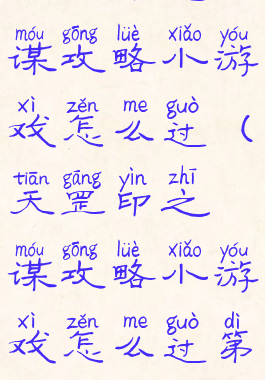 móu gōng lüè xiǎo yóu
谋攻略小游
xì zěn me guò
戏怎么过（
tiān gāng yìn zhī
天罡印之
móu gōng lüè xiǎo yóu
谋攻略小游
xì zěn me guò dì
戏怎么过第